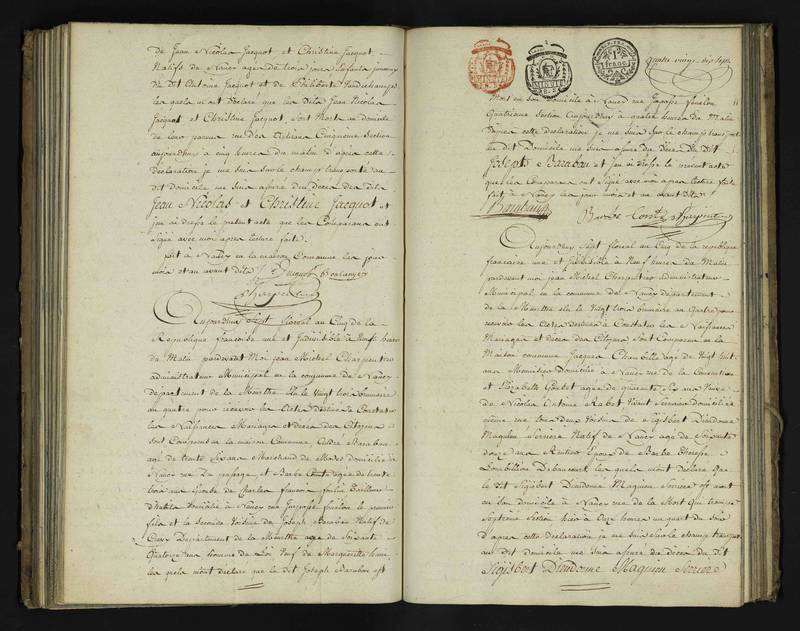 de Jean Nicolas Jacquot et Christine Jacquot
Natifs de Nancy agés de trois jours Enfants jumeaux
du dit Antoine Jacquot et de
les quels m'ont déclaré que les dits Jean Nicolas
Jacquot et Christine Jacquot, sont Morts au domicile
de leur parents rue des Artisans Cinquieme Section
aujourdhuy a cinq heures du matin d'apres cette
declaration je me suis sur le champ transporté au
dit domicile me suis assuré du Deces des dits
Jean Nicolas et Christine Jacquot et
jen ai dressé le présent acte que les Comparans ont
Signé avec moi apres lecture faite.
fait a Nancy en la maison Commune les jour
mois et an avant dits
Charpentier
Aujourdhuy Sept floréal an Cinq de la
Republique francoise une et Indivisible à Neuf heures
du Matin pardevant Moi jean Michel Charpentier
administrateur Municipal en la commune de Nancy
département de la Meurthe Elu le vingt trois Brumaire
an quatre pour recevoir les Actes destinés a Constater
les Naissances Mariages et deces des Citoyens
Sont Comparus en la maison Commune, André Barabau
agé de trente Six ans Marchand de Modes domicilié a
Nancy rue La fayage et Barbe Comte agée de trente
trois ans Epouse de Charles francois Tailleur
d'habits domicilié a Nancy rue le premier
fils et la Seconde Voisine de Joseph Barabau Natif de
Département de la Meurthe agé de Soixante
Quatorze ans homme de Loi Veuf de Marguerite
les quels m'ont déclaré que le dit Joseph Barabau est
MINUTE
MINUTE
1 franc
quatre vingt dix Sept
Mort en son domicile à Nancy rue
Quatrieme Section Aujourdhuy a quatre heures du Matin
d'apres cette déclaration je me suis sur le champ transporté
au dit Domicile me suis assuré du Deces du dit
Joseph Barabau et jen ai dressé le present acte
que les Comparans ont Signé avec moi apres lecture faite
fait a Nancy les jour mois et an avant dits
Barabau Barbe Comte Charpentier
Aujourdhuy Sept floreal an Cinq de la republique
francaise une et Indivisible à Neuf heures du Matin
pardevant moi jean Michel Charpentier administrateur
Municipal en la commune de Nancy département
de la Meurthe elu le Vingt trois brumaire an Quatre pour
recevoir les Actes destinés a Constater les Naissances
Mariages et deces des Citoyens Sont Comparus en la
Maison commune Jacques agé de Vingt huit
ans Menuisier Domicilié à Nancy rue de la Convention
et Elizabeth agée de quarante Six ans Veuve
de Nicolas Antoine Rabot Vivant Serrurier domiciliée
même rue tous deux Voisins de Sigisbert Dieudonné
Maquien Serriere Natif de Nancy agé de Soixante
douze ans Rentier Epoux de Barbe Therese
les quels m'ont déclaré que
le dit Sigisbert Dieudonné Maquien Serriere est mort
en son domicile à Nancy rue de la
Septieme Section hier à Onze heures un quart du Soir
D'apres cette déclaration je me suis sur le champ transporté
au dit domicile me suis assuré du deces du dit
Sigisbert Dieudonné Maquien Serriere